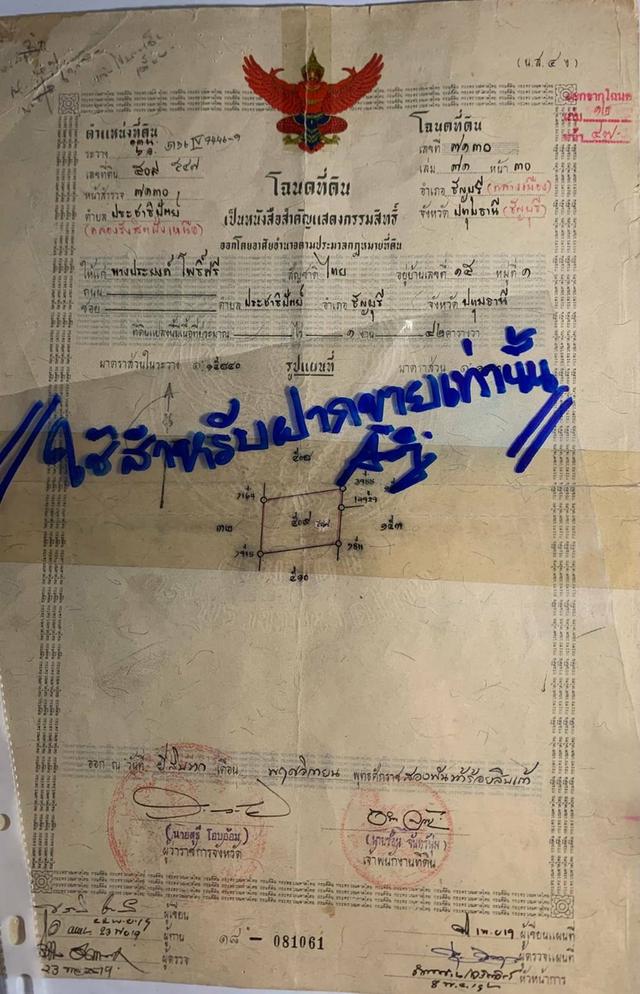 (น.ส.๔ จ)
ตำแหน่งที่ดิน
ระวาง
เลขที่ดิน ๕๐๙ ๕๔๗
หน้าสำรวจ ๗๑๓๐
ตำบล ประชาธิปัตย์
(คลองรังสิตฝั่งเหนือ)
โฉนดที่ดิน
เลขที่ ๗๑๓๐
เล่ม ๗๑ หน้า ๓๐
อำเภอ ธัญบุรี (กลางเมือง)
จังหวัด ปทุมธานี (ธัญบุรี)
โฉนดที่ดิน
เป็นหนังสือสำคัญแสดงกรรมสิทธิ์
ออกโดยอาศัยอำนาจตามประมวลกฎหมายที่ดิน
ให้แก่ นางประยงค์ โพธิ์ศรี สัญชาติ ไทย อยู่บ้านเลขที่ ๑๕ หมู่ที่ ๑
ถนน
ซอย ตำบล ประชาธิปัตย์ อำเภอ ธัญบุรี จังหวัด ปทุมธานี
ที่ดินแปลงนี้มีเนื้อที่ประมาณ ไร่ ๑ งาน ๔๒ ตารางวา
มาตราส่วนในระวาง รูปแผนที่ มาตราส่วน
//ใช้สำหรับฝากขายเท่านั้น//
๕๐๘
๓๒ ๕๐๙ ๕๔๗ ๑๕๓
๕๑๐
ออก ณ วันที่ ยี่สิบหก เดือน พฤศจิกายน พุทธศักราช สองพันห้าร้อยสิบเก้า
ผู้ว่าราชการจังหวัด
เจ้าพนักงานที่ดิน
ผู้เขียน
ผู้ทาน
ผู้ตรวจ
๑๘ - 081061
ผู้เขียนแผนที่
ผู้ตรวจแผนที่
หัวหน้าการ